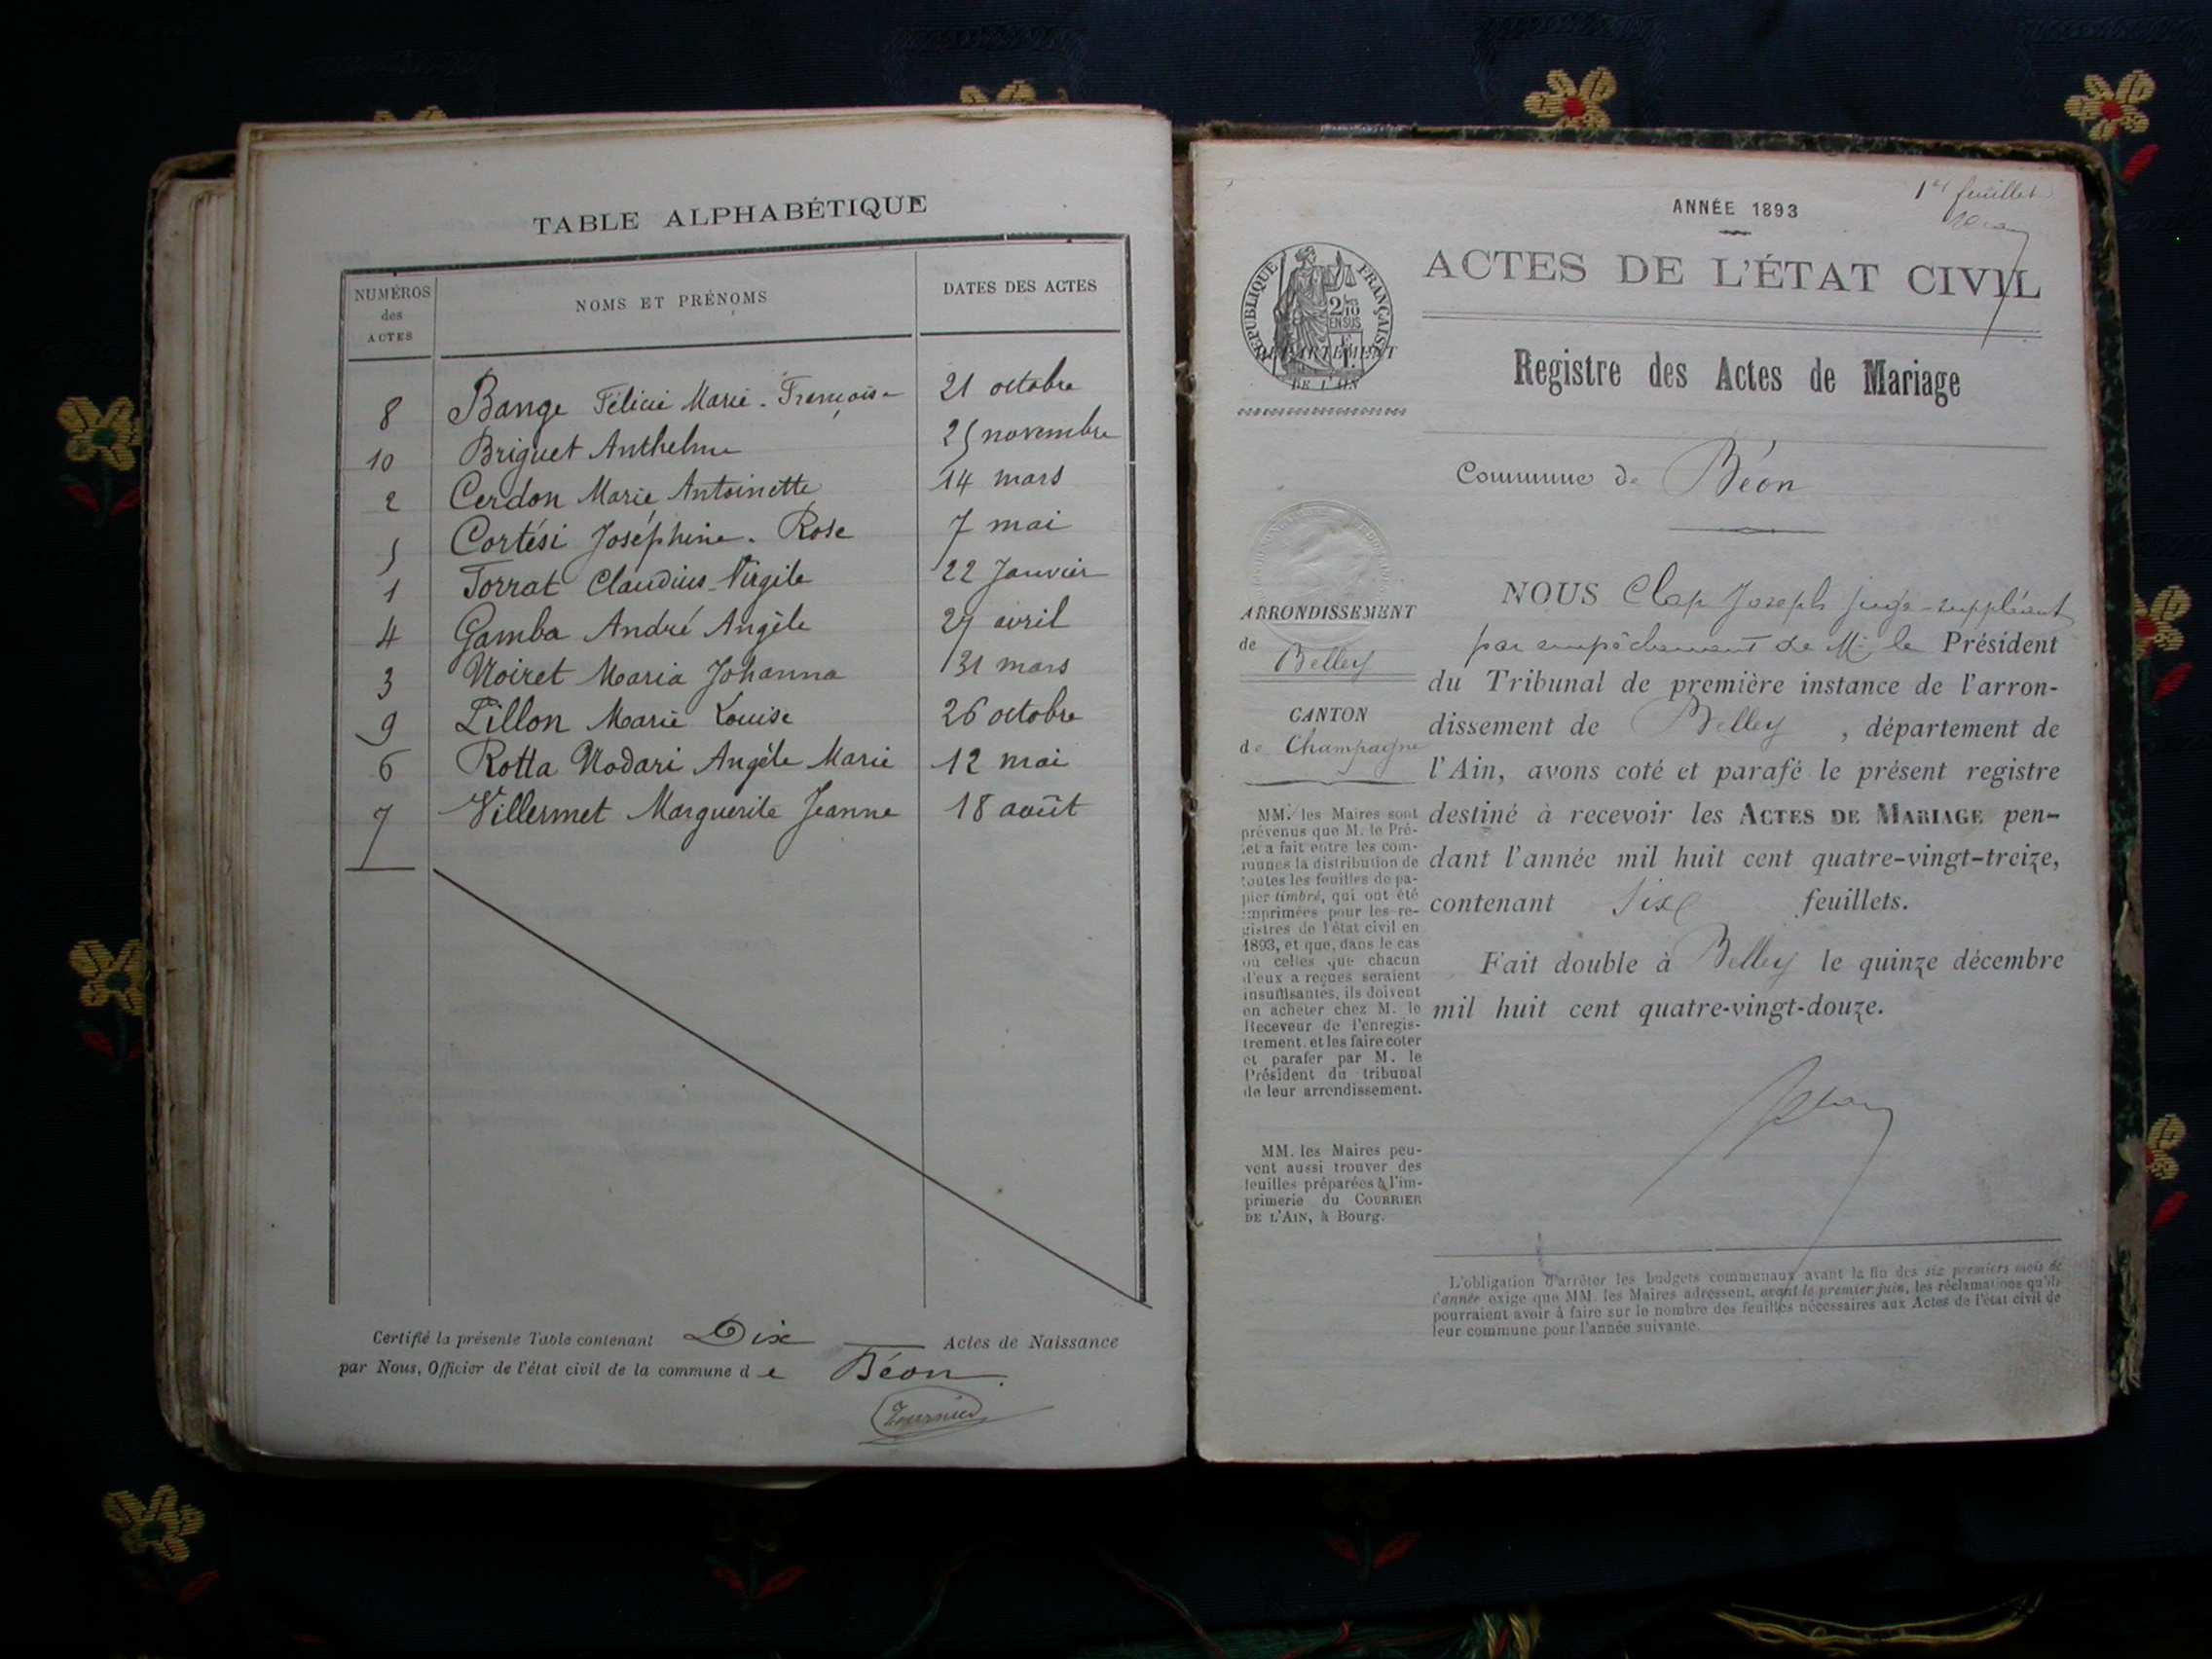 TABLE ALPHABÉTIQUE
NUMÉROS des ACTES NOMS ET PRÉNOMS DATES DES ACTES
8 Bange Félicie Marie-Françoise 21 octobre
10 Briguet Anthelme 25 novembre
2 Cerdon Marie Antoinette 14 mars
5 Cortési Joséphine-Rose 7 mai
1 Forrat Claudius-Virgile 22 Janvier
4 Gamba André Angèle 27 avril
3 Noiret Maria Johanna 31 mars
9 Pillon Marie Louise 26 octobre
6 Rotta Nodari Angèle Marie 12 mai
7 Villermet Marguerite Jeanne 18 août
Certifié la présente Table contenant Dix Actes de Naissance
par Nous, Officier de l'état civil de la commune de Béon.
Tournier
1er feuillet
ANNÉE 1893
ACTES DE L'ÉTAT CIVIL
RÉPUBLIQUE FRANÇAISE
2/10 EN SUS
DÉPARTEMENT
DE L'AIN
Registre des Actes de Mariage
Commune de Béon
ARRONDISSEMENT
de
Belley
CANTON
de Champagne
MM. les Maires sont
prévenus que M. le Pré-
fet a fait entre les com-
munes la distribution de
toutes les feuilles de pa-
pier timbré, qui ont été
imprimées pour les re-
gistres de l'état civil en
1893, et que, dans le cas
où celles que chacun
d'eux a reçues seraient
insuffisantes, ils doivent
en acheter chez M. le
Receveur de l'enregis-
trement, et les faire coter
et parafer par M. le
Président du tribunal
de leur arrondissement.
MM. les Maires peu-
vent aussi trouver des
feuilles préparées à l'im-
primerie du COURRIER
DE L'AIN, à Bourg.
NOUS Clap Joseph juge-suppléant
par empêchement de M. le Président
du Tribunal de première instance de l'arron-
dissement de Belley, département de
l'Ain, avons coté et parafé le présent registre
destiné à recevoir les ACTES DE MARIAGE pen-
dant l'année mil huit cent quatre-vingt-treize,
contenant six feuillets.
Fait double à Belley le quinze décembre
mil huit cent quatre-vingt-douze.
L'obligation d'arrêter les budgets communaux avant la fin des six premiers mois de
l'année exige que MM. les Maires adressent, avant le premier juin, les réclamations qu'ils
pourraient avoir à faire sur le nombre des feuilles nécessaires aux Actes de l'état civil de
leur commune pour l'année suivante.